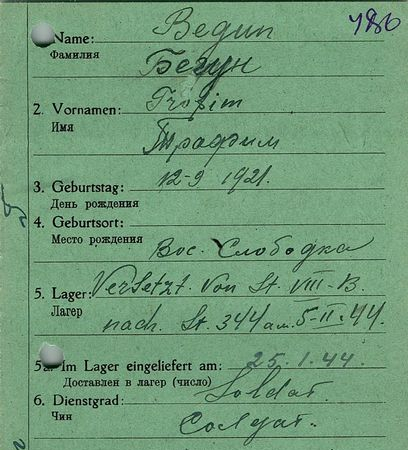 Name: Begun
Фамилия Бегун
486
2. Vornamen: Trofim
Имя Трафим
3. Geburtstag: 12-9 1921.
День рождения
4. Geburtsort:
Место рождения Вос. Слободка
5. Lager: Versetzt. Von St. VIII-B.
Лагер nach. St. 344 am. 5-II-44.
5a. Im Lager eingeliefert am: 25.1.44.
Доставлен в лагер (число)
6. Dienstgrad: Soldat.
Чин Солдат.